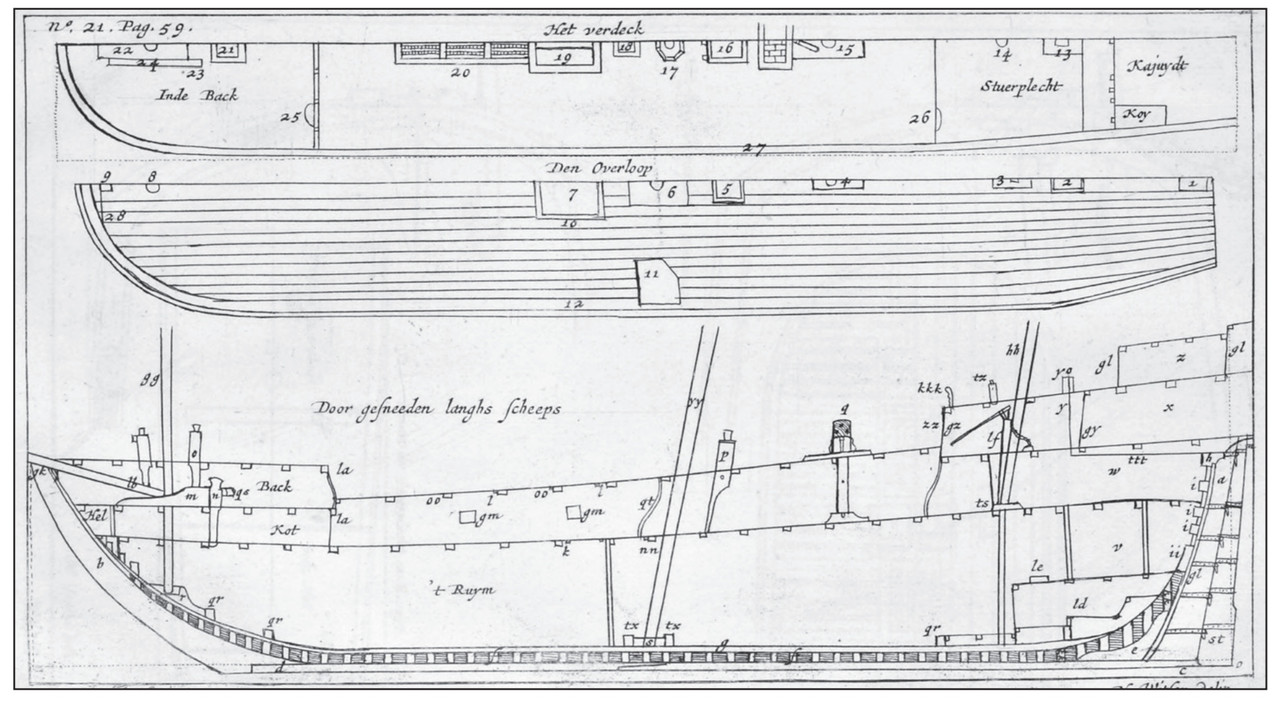 nº. 21. Pag. 59.
Het verdeck
22 21 24 23 20 19 18 17 16 15 14 13
Inde Back
Stuerplecht
Kajuydt
Koy
25 26 27
Den Overloop
9 8 7 6 5 4 3 2 1
28 10 11 12
gg yy hh
Door gesneeden langhs scheeps
kkk tz yo gl z gl
q zz gz lf y gy x
o p la w ttt h a
lb m n gs Back oo l oo l
gm gm qt ts i
Hel la Kot k nn i i
b v ii gl
't Ruym le
qr ld
qr tx tx qr st
d f s g f e c